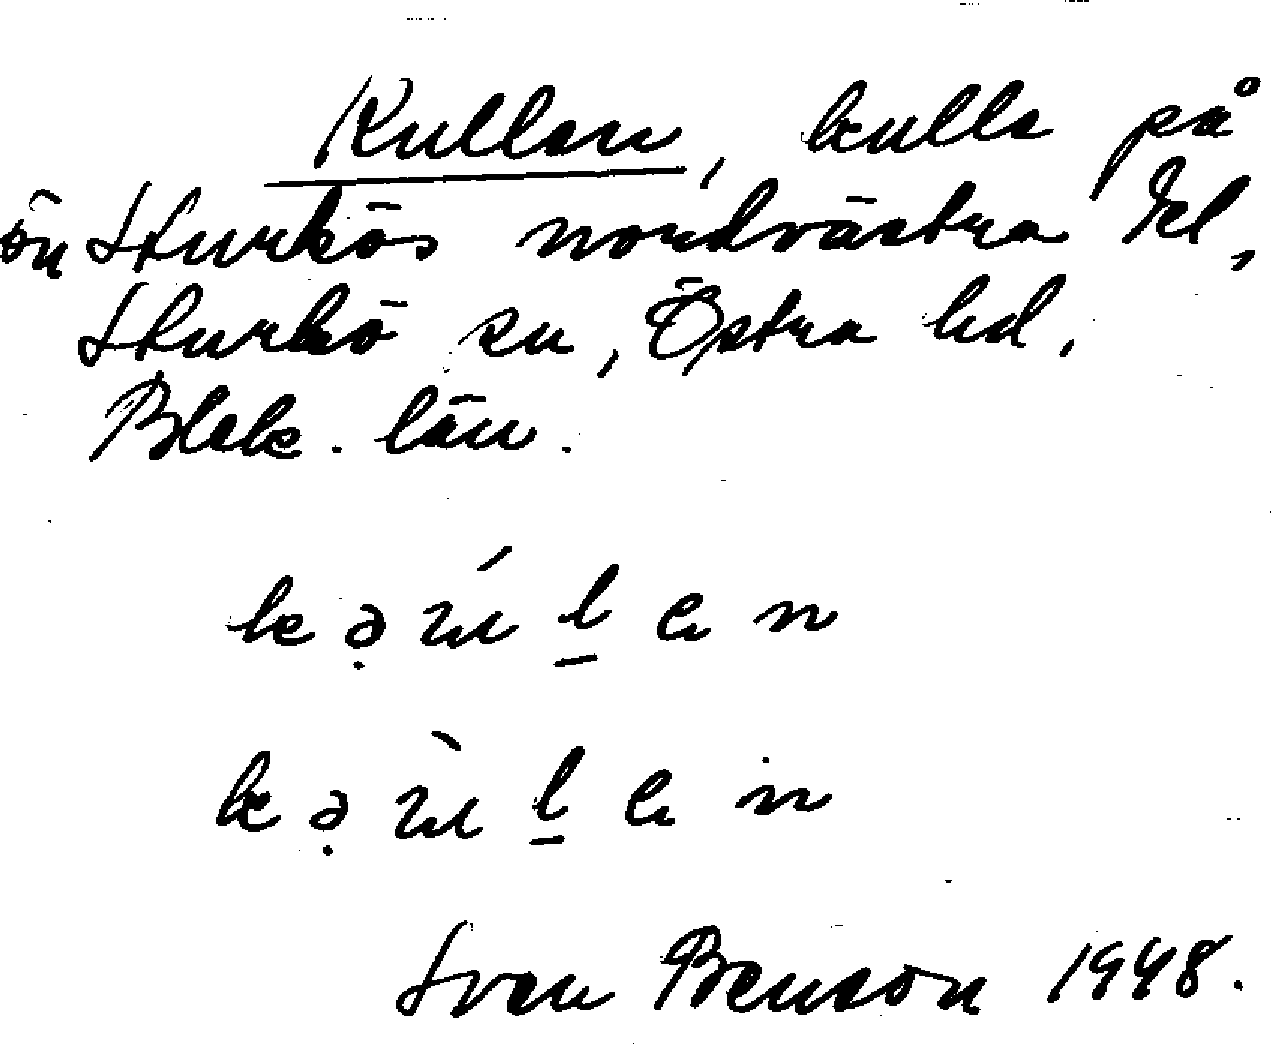 Kullen, kulle på
ön Sturkös nordvästra del,
Sturkö sn, Östra hd,
Blek. län.
Sven Benson 1948.